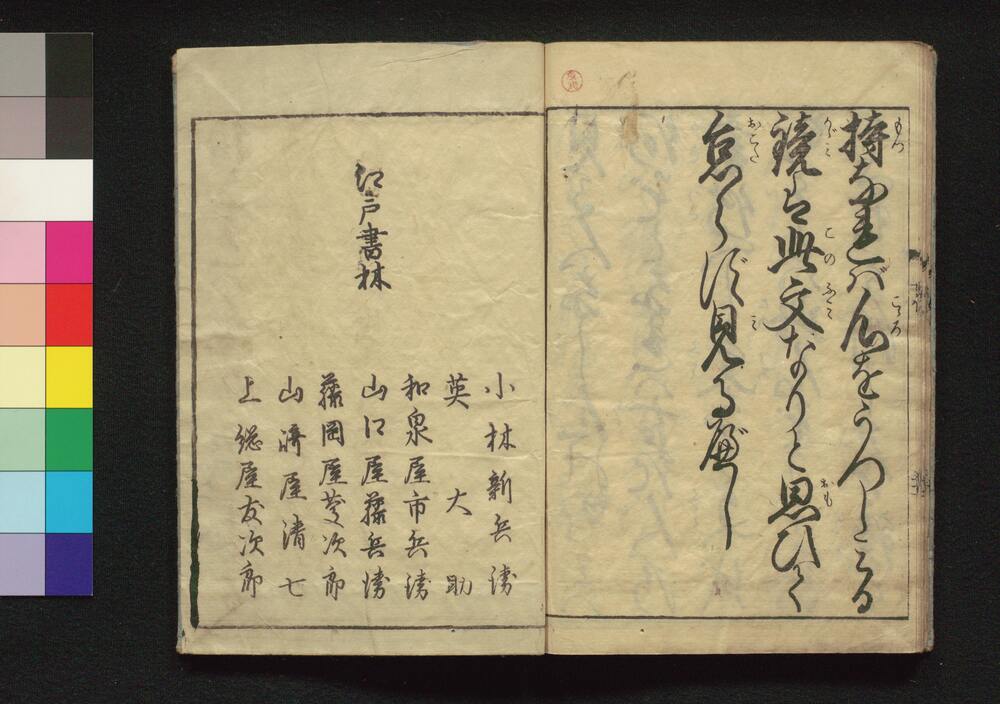 持なれバ心をうつしみる
鏡は此文なりと思ひて
怠らず見るべし
江戸書林
小林新兵衛
英大助
和泉屋市兵衛
山口屋藤兵衛
藤岡屋慶次郎
山崎屋清七
上総屋友次郎